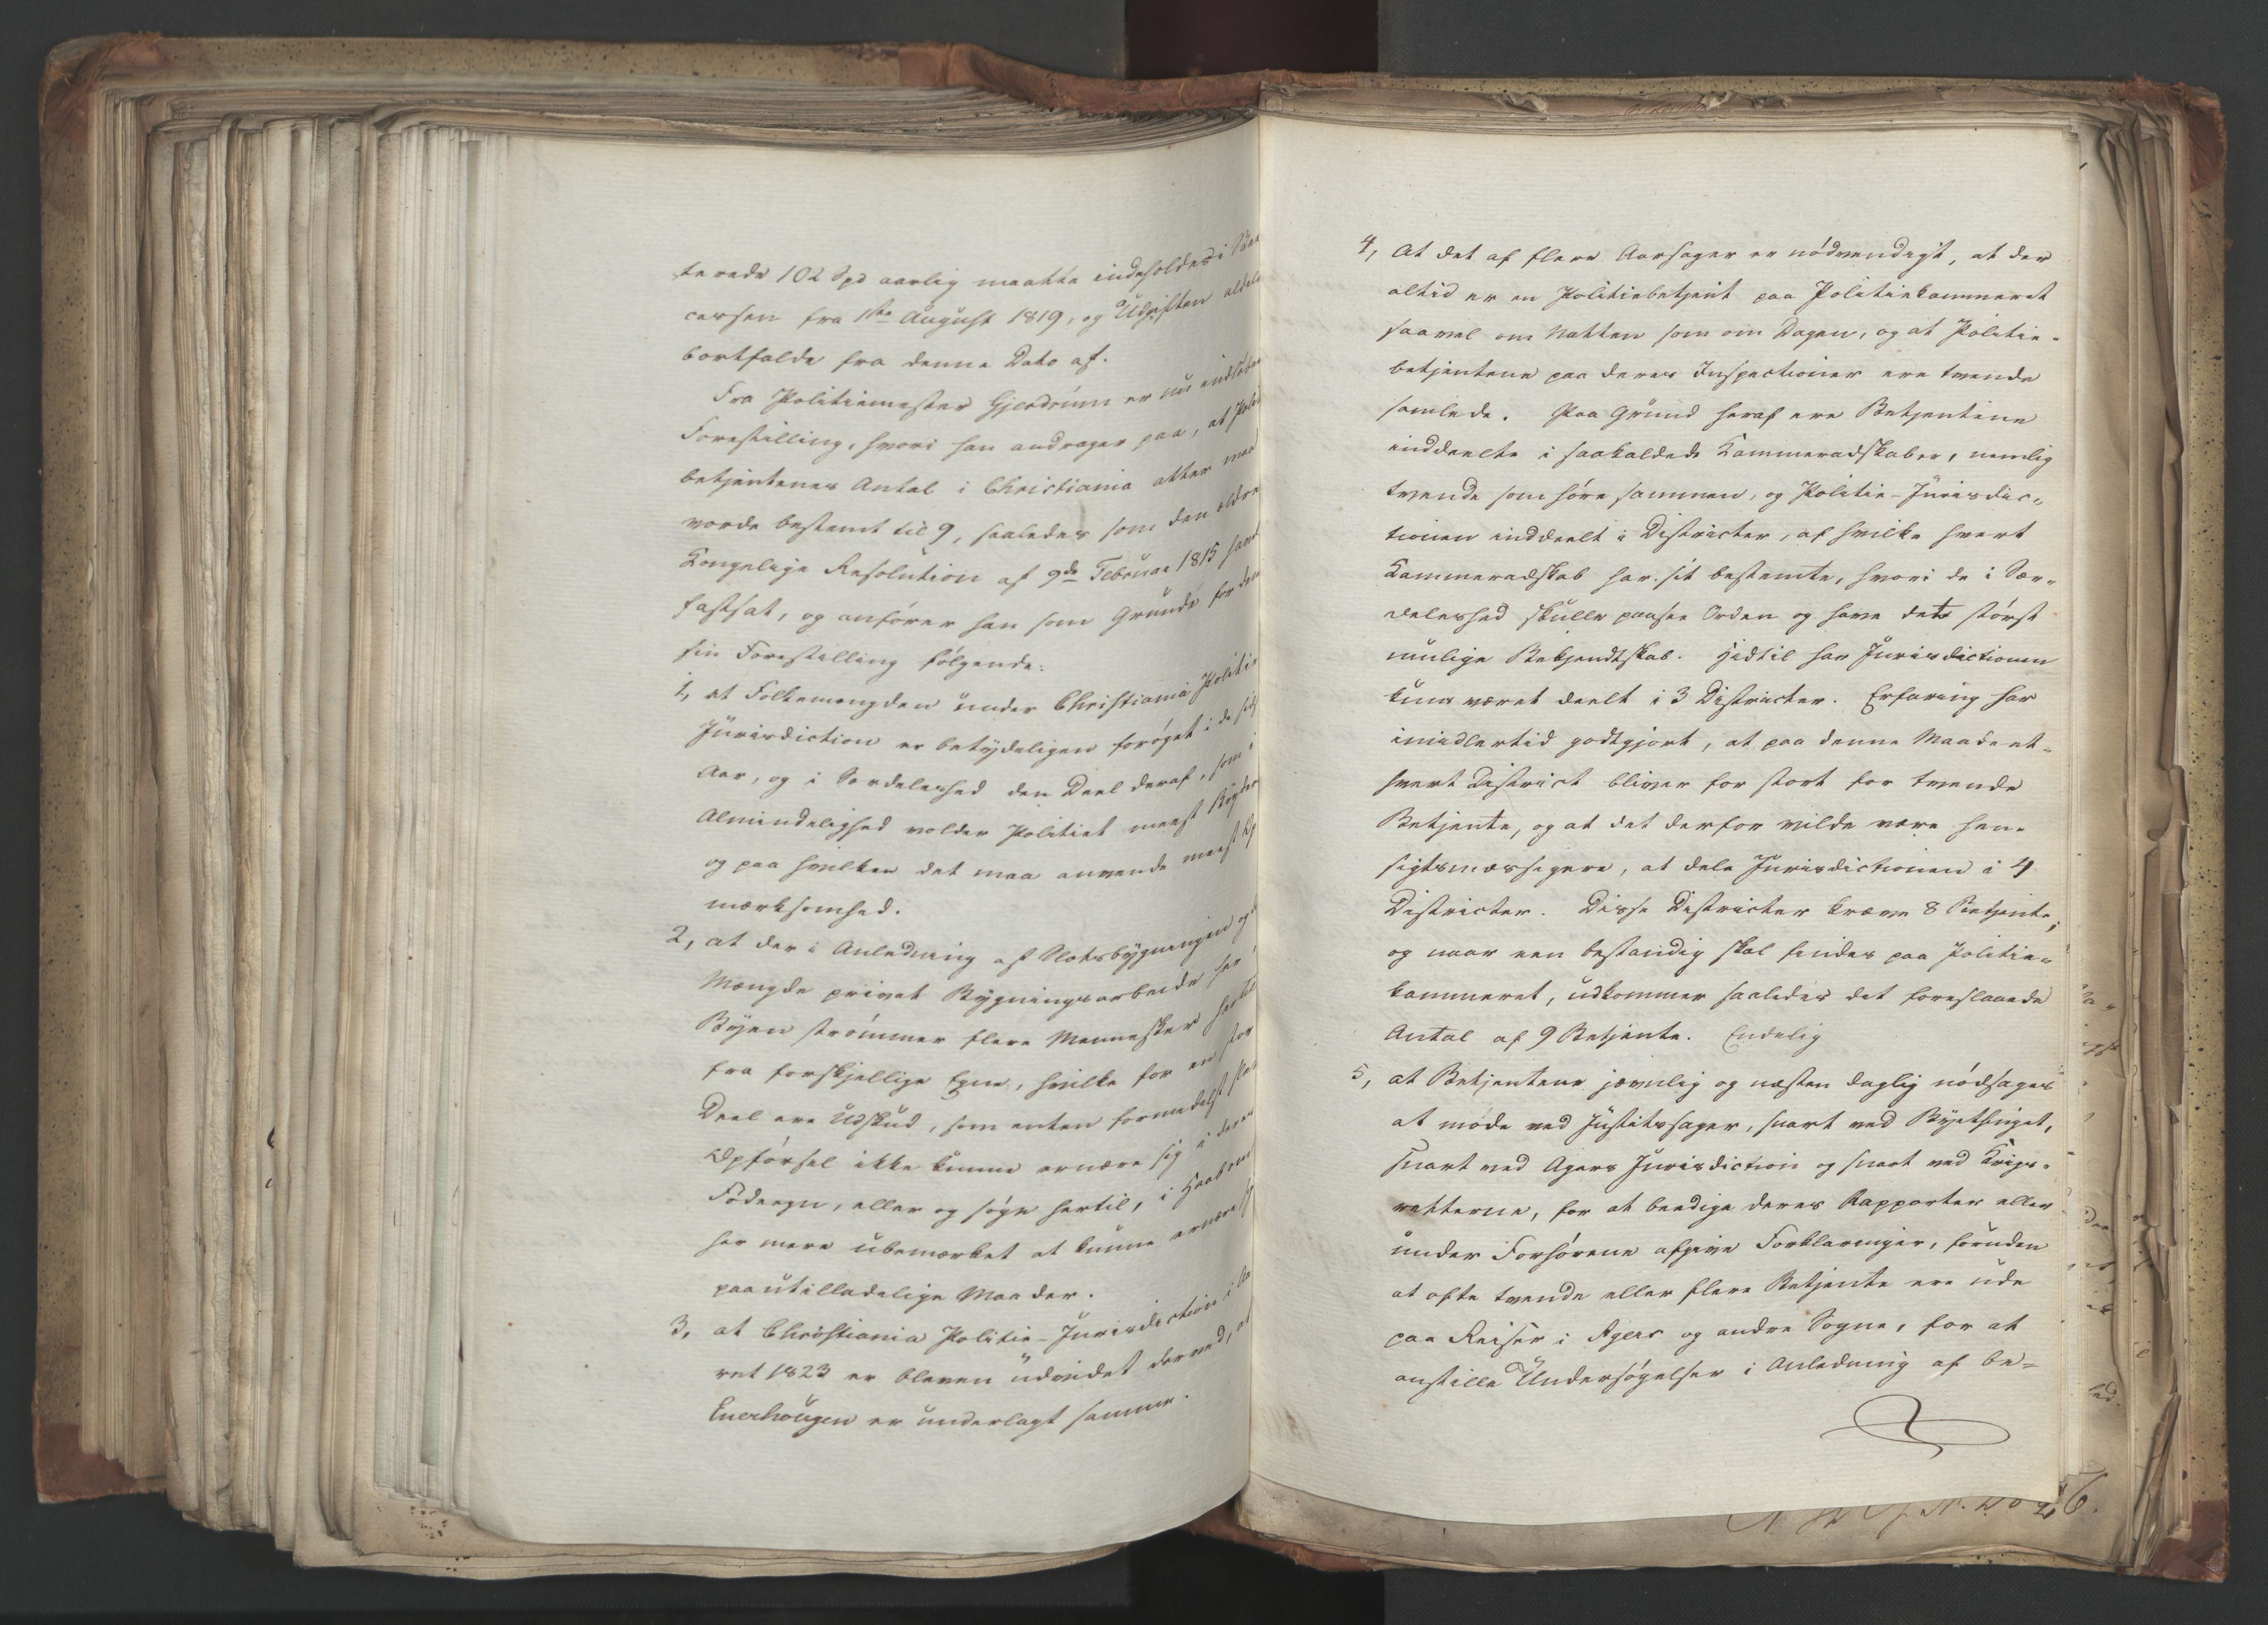 terede 102 Spd aarlig maatte indeholdes i
cassen fra 1ste August 1819, og Udgiften aldele
bortfalde fra denne Dato af.
Fra Politiemester Gjerdrum er nu indløben
Forestilling, hvori han andrager paa, at Poli
betjentenes Antal i Christiania atter maa
vorde bestemt til 9, saaledes som den ældre
Kongelige Resolution af 9de Februar 1815 havde
fastsat, og anfører han som Grunde for den
sin Forestilling følgende:
1, at Folkemængden under Christiania Politie
Jurisdiction er betydeligen forøget i de sids
Aar, og i Særdeleshed den Deel deraf, som i
Almindelighed volder Politiet meest Bryderi
og paa hvilken det maa anvende meest Op
mærksomhed.
2, at der i Anledning af Slotsbygningen og
Mængde privat Bygningsarbeide her i
Byen strømmer flere Mennesker hertil
fra forskjellige Egne, hvilke for en stor
Deel ere Udskud, som enten formedelst slet
Opførsel ikke kunne ernære sig i deres
Fødeegn, eller og søge hertil, i Haab om
her mere ubemærket at kunne ernære sig
paa utilladelige Maader.
3, at Christiania Politie-Jurisdiction i Aa
ret 1823 er bleven udvidet derved, at
Enerhougen er underlagt samme.
4, At det af flere Aarsager er nødvendigt, at der
altid er en Politiebetjent paa Politiekammeret
saavel om Natten som om Dagen, og at Politie-
betjentene paa deres Inspectioner ere tvende
samlede. Paa Grund heraf ere Betjentene
inddeelte i saakaldede Kammeradskaber, nemlig
tvende som høre sammen, og Politie-Jurisdic-
tionen inddeelt i Districter, af hvilke hvert
Kammeradskab har sit bestemte, hvori de i Sær-
deleshed skulle paasee Orden og have det størst
mulige Bekjendtskab. Hidtil har Jurisdictionen
kun været deelt i 3 Districter. Erfaring har
imidlertid godtgjort, at paa denne Maade et-
hvert District bliver for stort for tvende
Betjente, og at det derfor vilde være hen-
sigtsmæssigere, at dele Jurisdictionen i 4
Districter. Disse Districter kræve 8 Betjente,
og naar een bestandig skal findes paa Politie-
kammeret, udkommer saaledes det foreslaaede
Antal af 9 Betjente. Endelig
5, at Betjentene jævnlig og næsten daglig nødsages
at møde ved Justitssager, snart ved Byethinget,
snart ved Agers Jurisdiction og snart ved Krigs-
retterne, for at beedige deres Rapporter eller
under Forhørene afgive Forklaringer, foruden
at ofte tvende eller flere Betjente ere ude
paa Reiser i Agers og andre Sogne, for at
anstille Undersøgelser i Anledning af be-